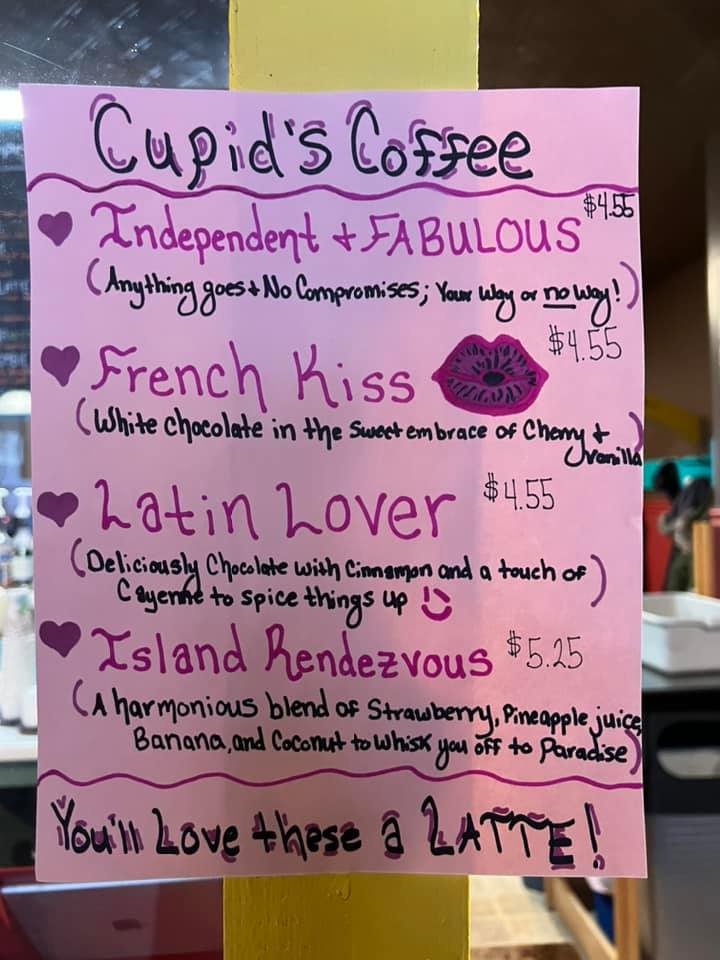 Cupid's Coffee
Independent + FABULOUS $4.55
(Anything goes + No Compromises; Your Way or no Way!)
French Kiss $4.55
(White chocolate in the Sweet embrace of Cherry +
Vanilla)
Latin Lover $4.55
(Deliciously Chocolate with Cinnamon and a touch of
Cayenne to spice things up )
Island Rendezvous $5.25
(A harmonious blend of Strawberry, Pineapple juice,
Banana, and Coconut to Whisk you off to Paradise)
You'll Love these a LATTE!